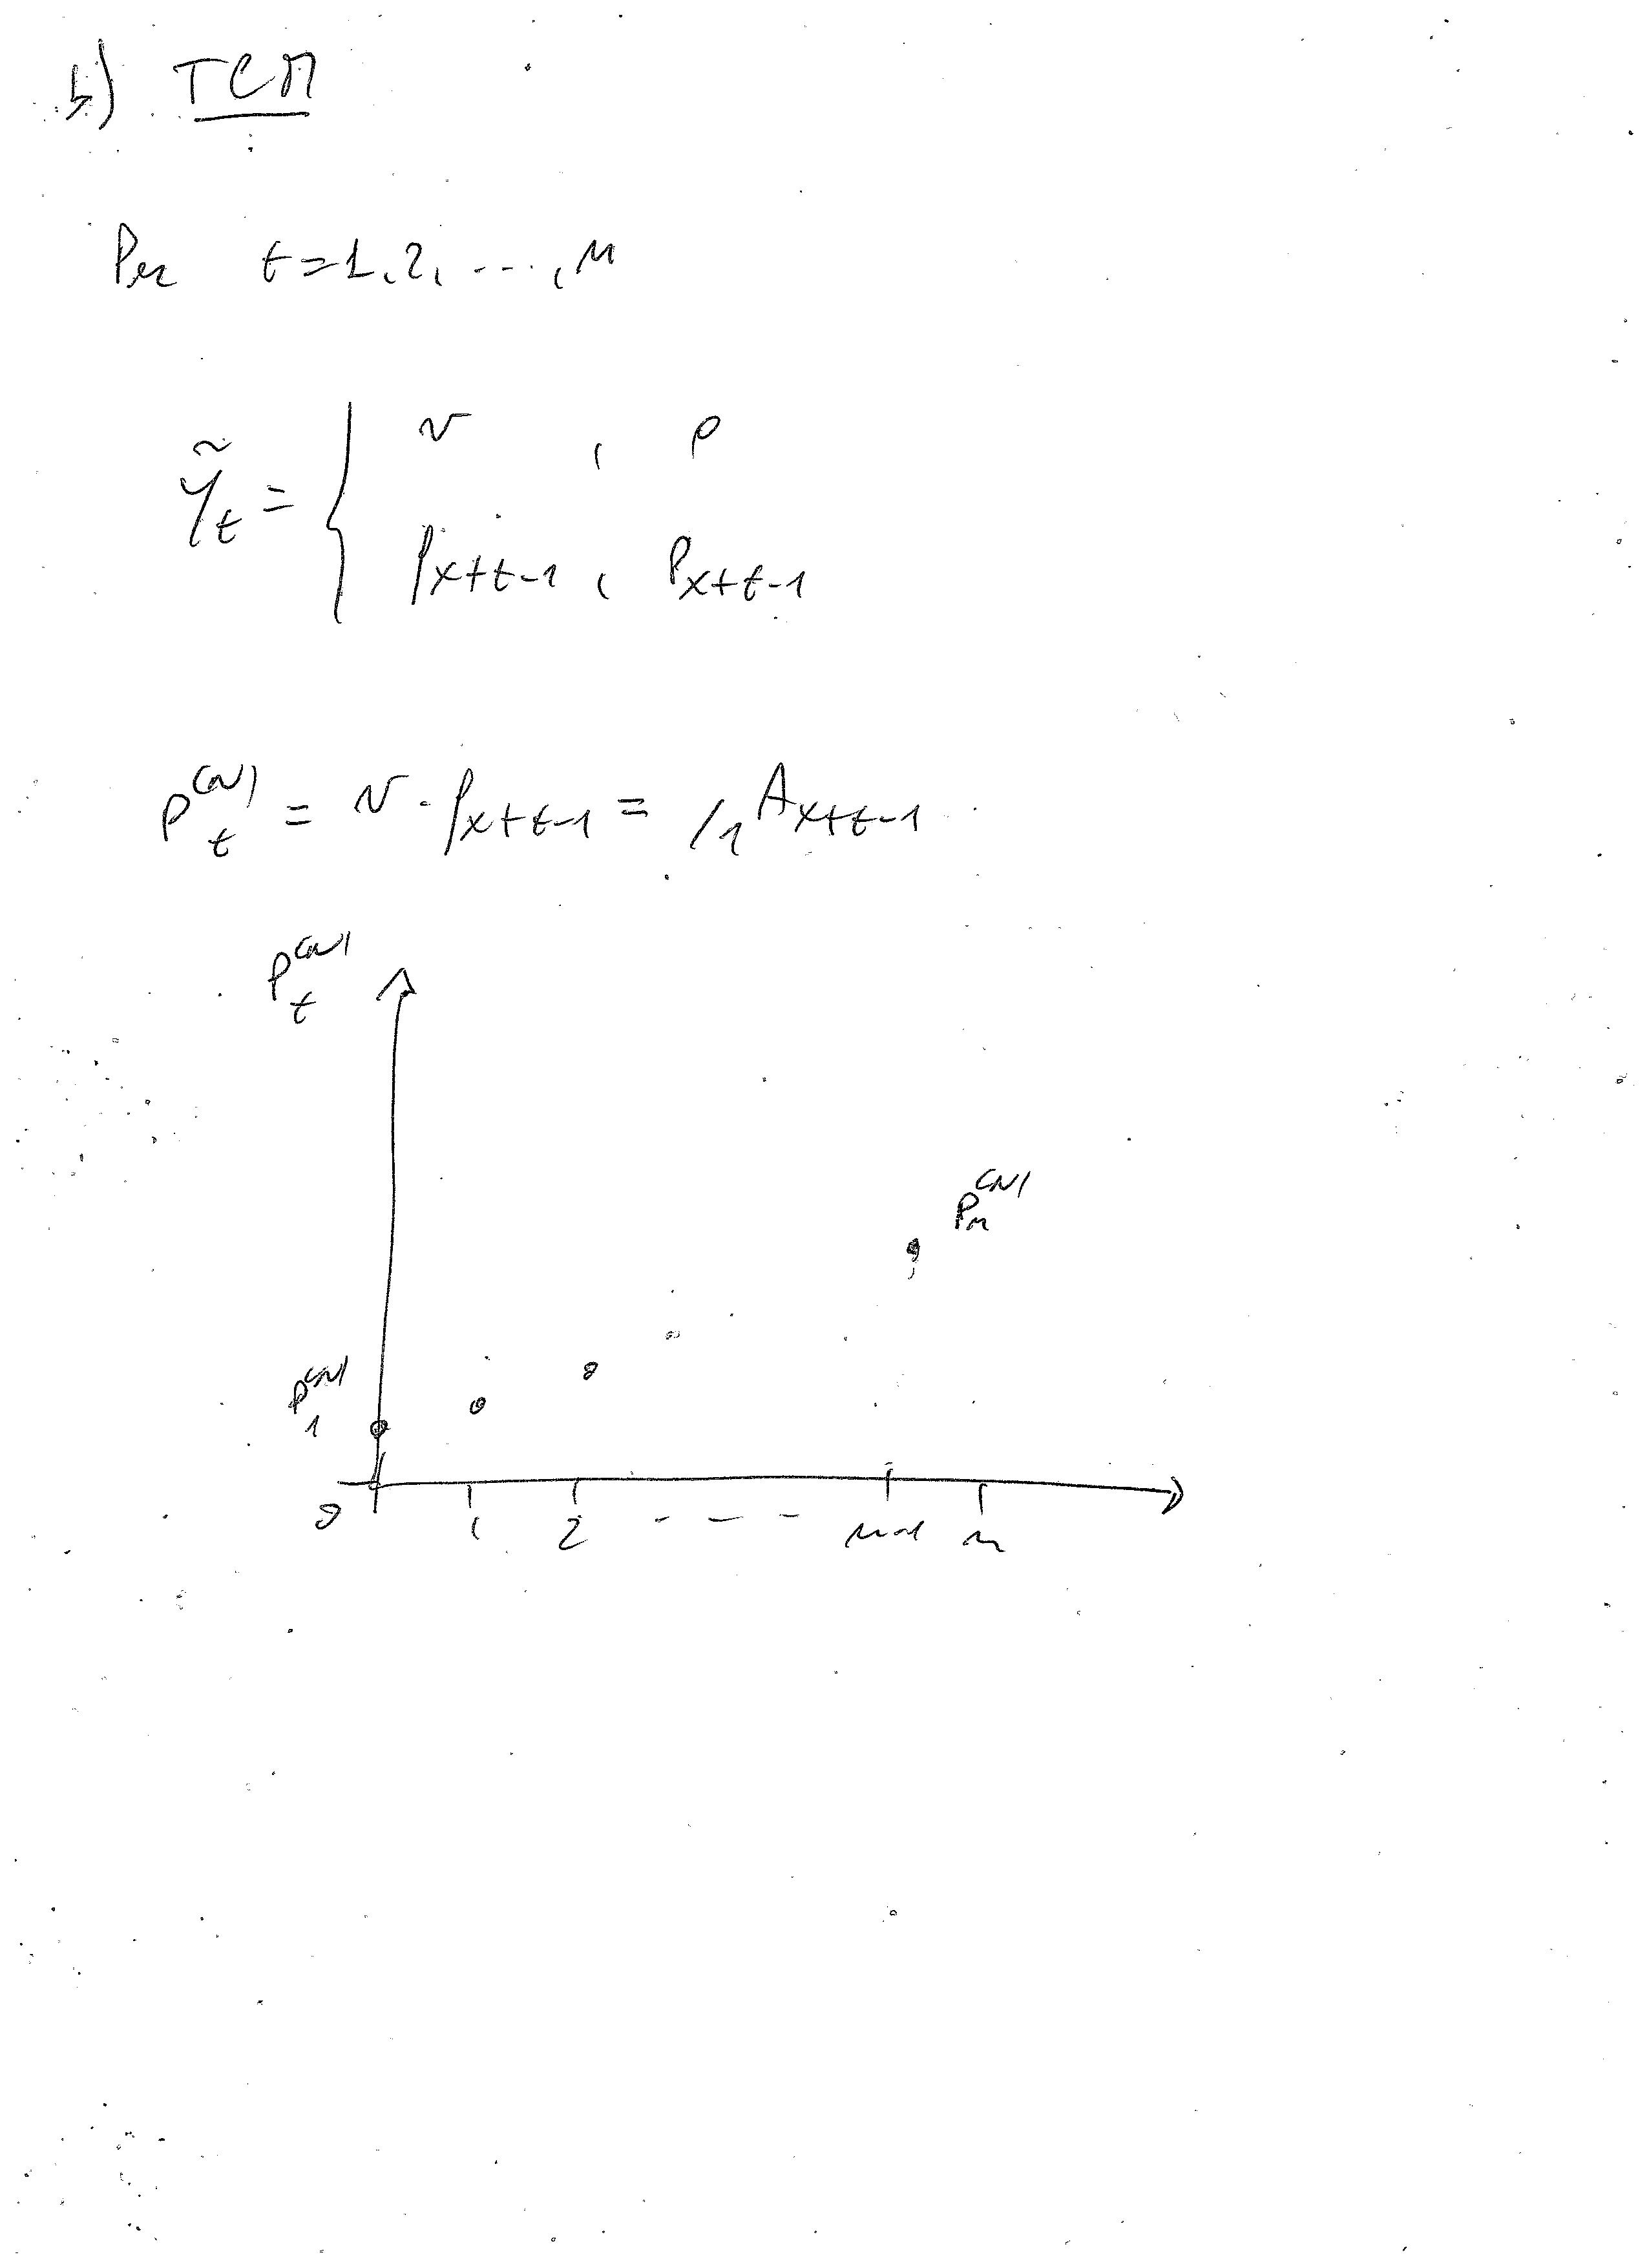 b) TCM
Per t=1,2,...,n
Ỹt = { v , ρ
ρx+t-1 , Px+t-1
P_t^(N) = v · ρx+t-1 = /1 Ax+t-1
P_t^(N)
P_n^(N)
P_1^(N)
0 1 2 - - - n-1 n